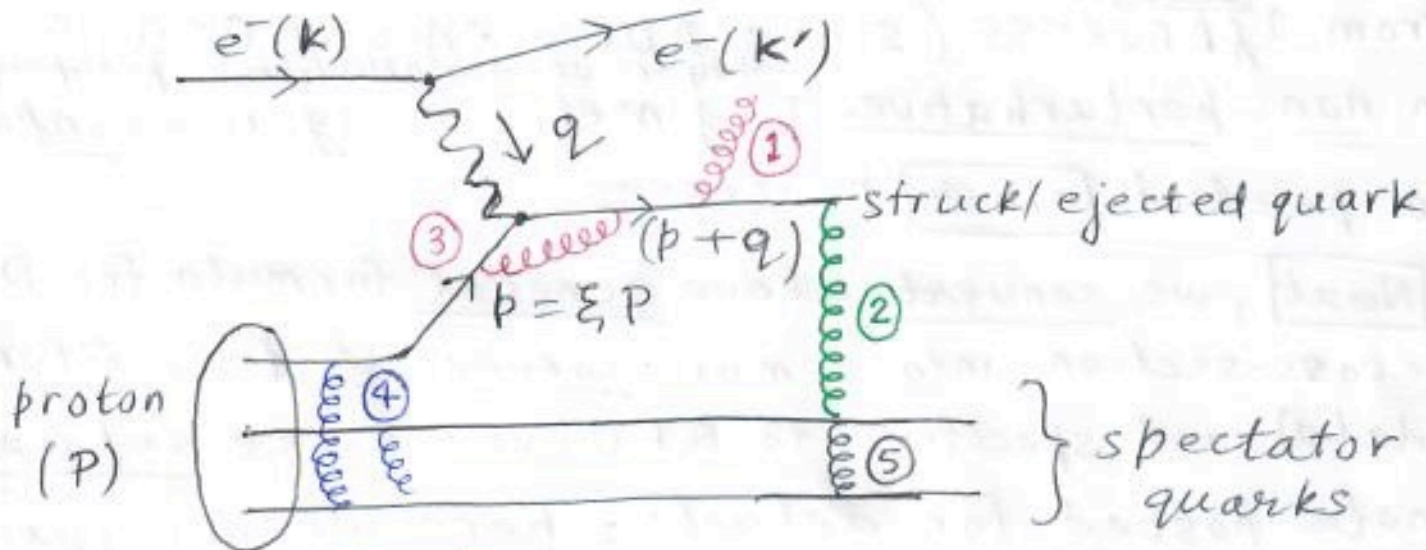 e⁻(k)
e⁻(k')
q
①
struck/ejected quark
③
(p + q)
p = ξP
②
proton
(P)
④
⑤
spectator
quarks